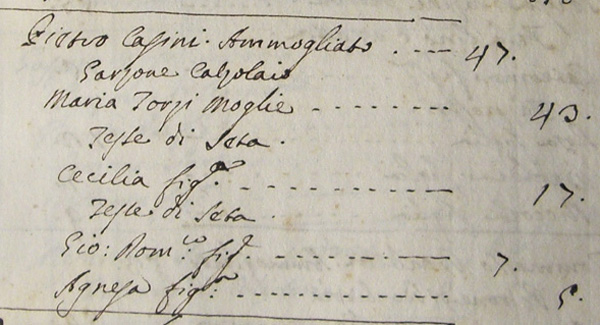 Pietro Casini. Ammogliato . --- 47.
Garzone Calzolaio
Maria Torzi Moglie -------- 43.
Tesse di Seta.
Cecilia figª. ----------- 17.
Tesse di Seta.
Gio: Domᶜᵒ: figº. --------- 7.
Agnesa figª: ------------ 5.